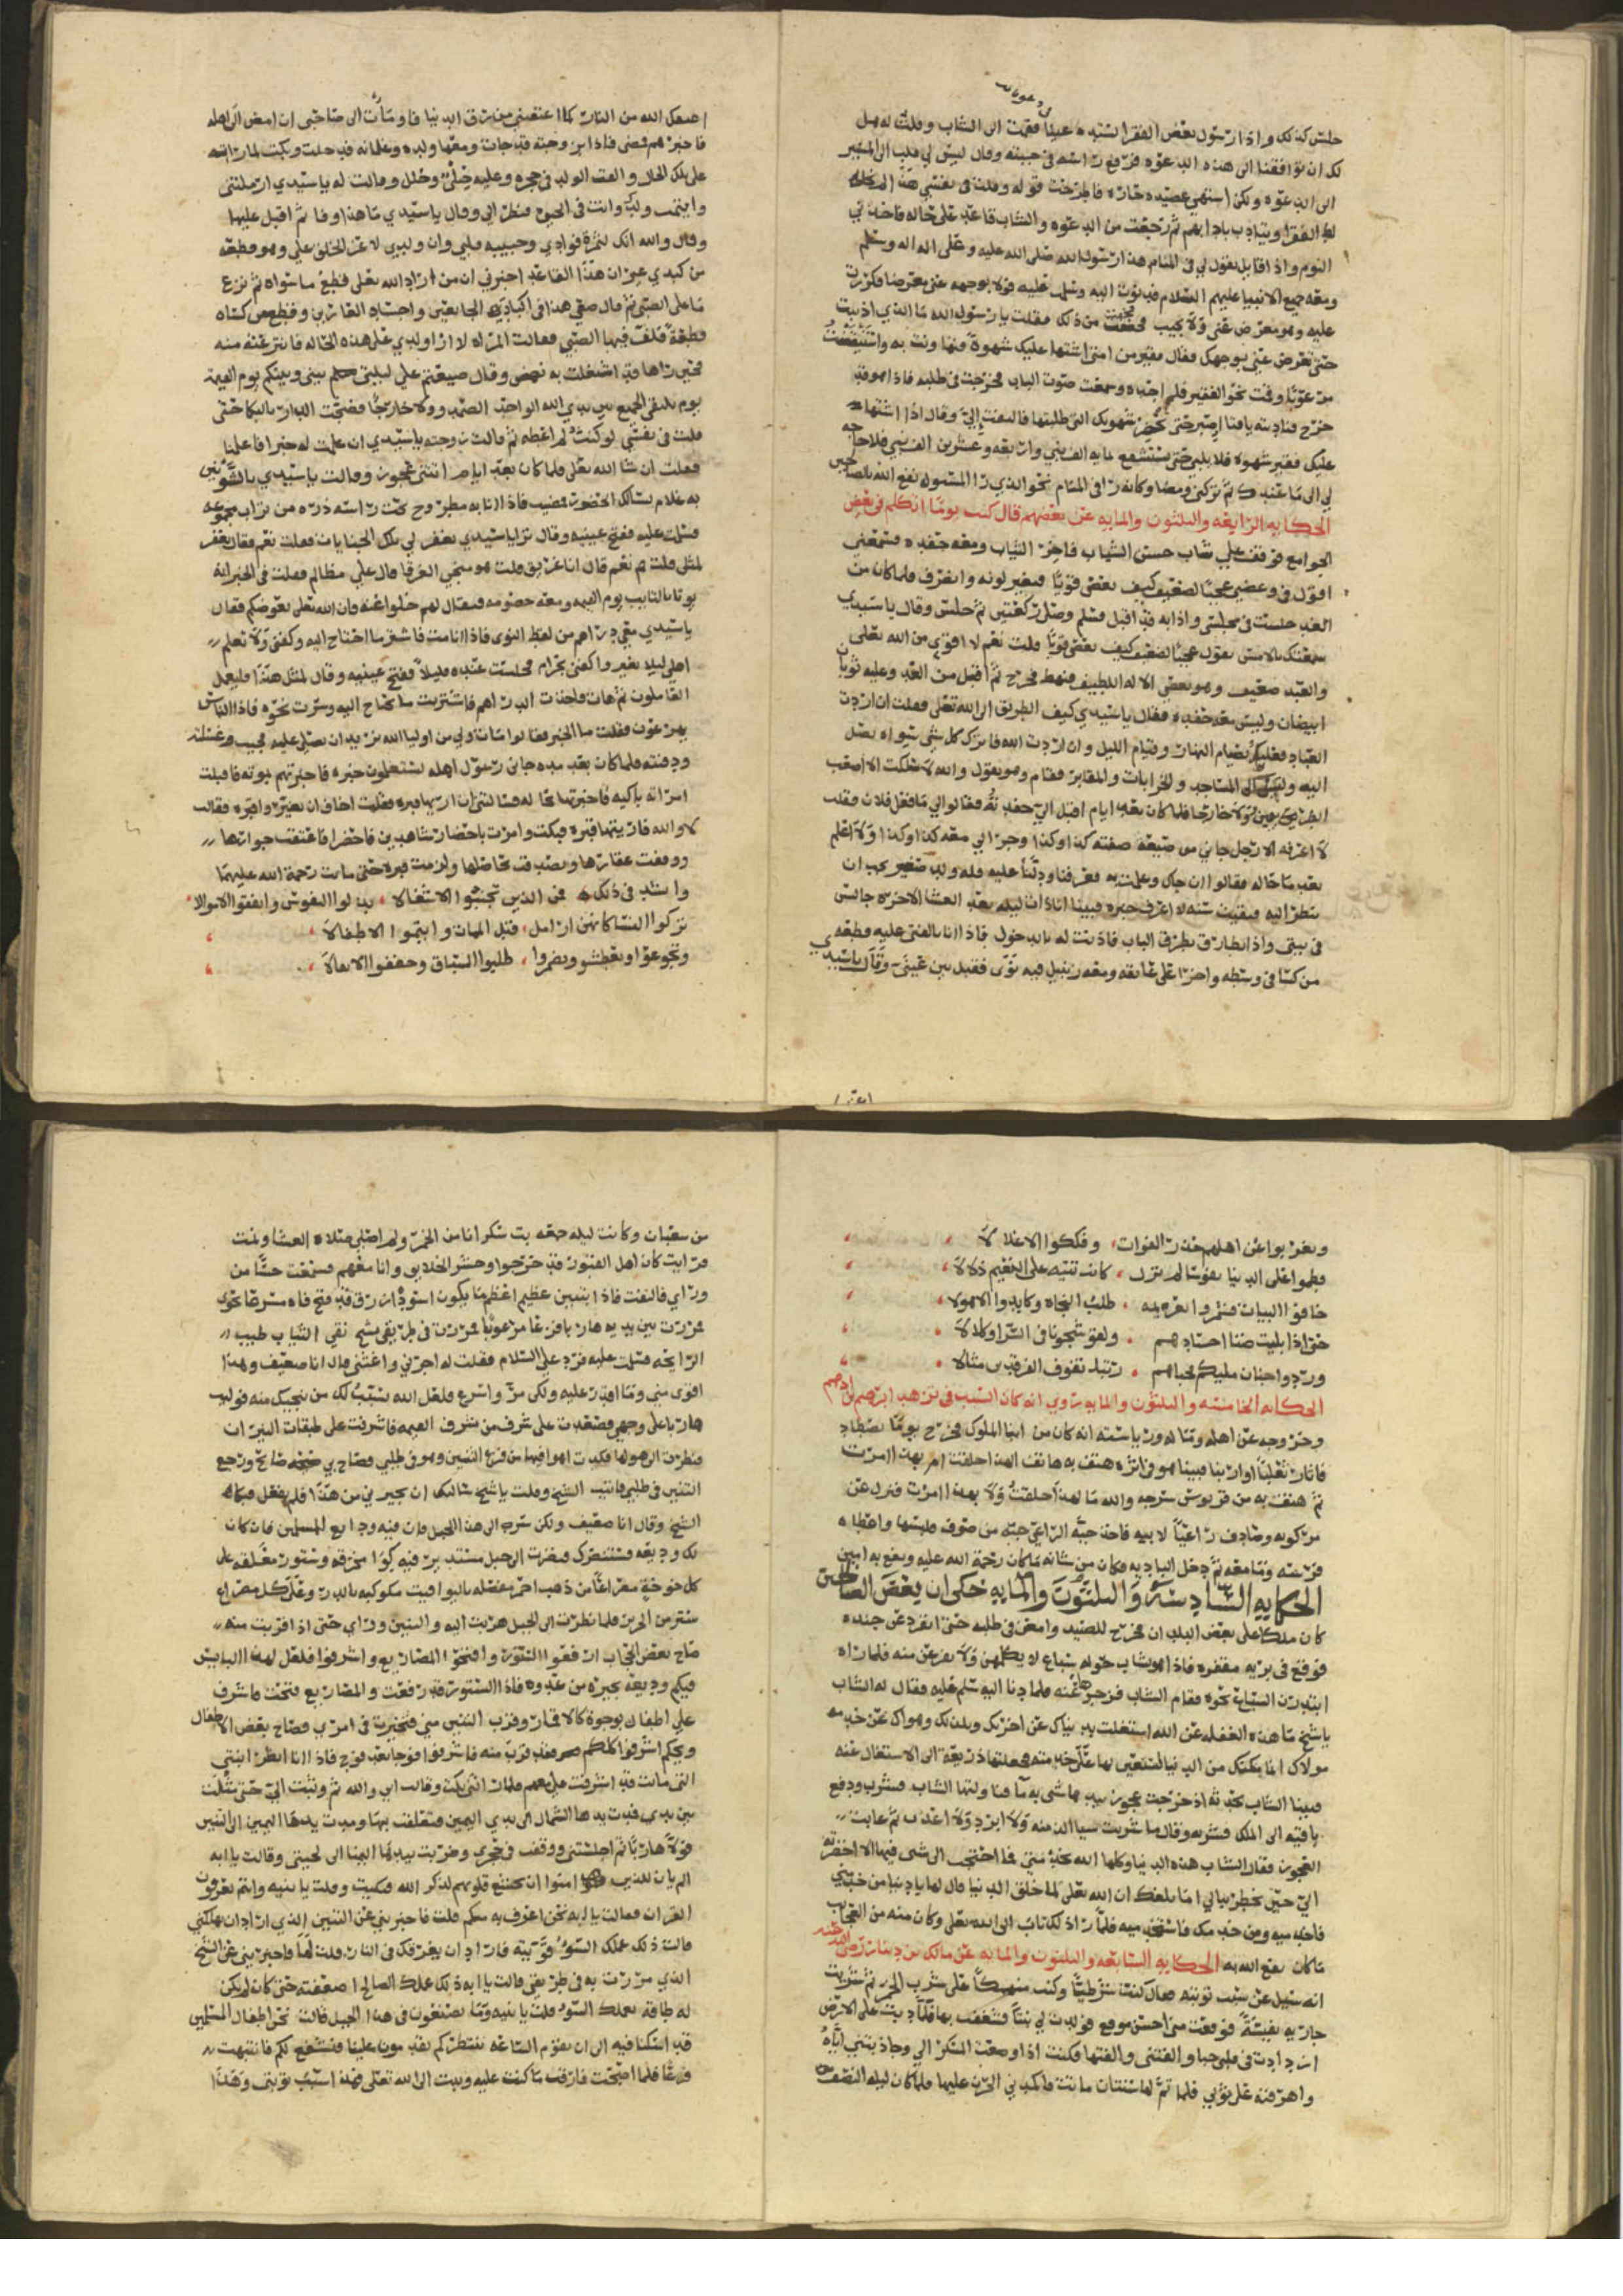 جلس كذلك واذا رسول بعض الفقرا استدعينا فقمت الى الشاب وقلت له هل
لك ان توافقنا الى هذه الدعوه فرفع راسه في جيبته وقال ليس لي قلب الى المسير
الى الدعوه ولكن اشتهي عصيده حاره فاطرحت قوله وقلت في نفسي هذا
الفقرا ويتادب بادابهم ثم رجعت من الدعوه والشاب قاعد على حاله فاخذني
النوم واذا قايل يقول لي في المنام هذا رسول الله صلى الله عليه وعلى اله وسلم
ومعه جميع الانبيا عليهم السلام فدنوت اليه وسلمت عليه فولا بوجهه عني معرضا فكررت
عليه وهو معرض عني ولا يجيب فخفت من ذلك فقلت يا رسول الله ما الذي اذنبت
حتى تعرض عني بوجهك فقال فقير من امتي اشتها عليك شهوة فتهاونت به واستيقظت
مرعوبا وقمت نحو الفقير فلم اجده وسمعت صوت الباب فخرجت في طلبه فاذا هو قد
خرج فناديته يا فتا اصبر حتى تحضر شهوتك التي طلبتها فالتفت الي وقال اذا اشتها
عليك فقير شهوه فلا يلبي حتى تستشفع بمايه الف نبي واربعه وعشرين الف نبي فلا حاجه
لي الى ما عندك ثم تركني ومضا وكانه را في المنام نحو الذي را المسئول نفع الله بالصالحين
الحكايه الرابعه والثلثون والمايه عن بعضهم قال كنت يوما اتكلم في بعض
الجوامع فوقف علي شاب حسن الشباب فاخر الثياب ومعه حفده فسمعني
اقول في وعضي عجبا لضعيف كيف يعصي قويا فتغير لونه وانصرف فلما كان من
الغد جلست في مجلسي واذا به قد اقبل فسلم وصلى ركعتين ثم جلس وقال يا سيدي
سمعتك بالامس تقول عجبا لضعيف كيف يعصي قويا قلت نعم لا اقوى من الله تعالى
والعبد ضعيف وهو يعصي الاله اللطيف فنهض فخرج ثم اقبل من الغد وعليه ثوبان
ابيضان وليس معه حفده فقال يا سيدي كيف الطريق الى الله تعلى فقلت ان اردت
العباد فعليك بصيام النهار وقيام الليل وان اردت الله فاترك كل شي سواه تصل
اليه المساجد والخرابات والمقابر فقام وهو يقول والله لا سلكت الا اصعب
الطريقين وولا خارجا فلما كان بعد ايام اقبل الي حفدته فقالوا لي ما فعل فلان فقلت
لا اعرفه الا رجل جاني من صفته كذا وكذا وجرا لي معه كذا وكذا ولا اعلم
بعد ما حاله فقالوا
ينظر اليه فبقيت سنه لا اعرف خبره فبينا انا ذات ليله بعد العشا الاخره جالس
في بيتي واذا بطارق يطرق الباب فاذنت له بالدخول فاذا انا بالفتى عليه قطعه
من كسا في وسطه واخرا على عاتقه ومعه زنبيل فيه نوى فقبل بين عيني وقال يا سيدي
اعتقك الله من النار كما اعتقتني من رق الدنيا فاومات الى صاحبي ان امض الى اهله
فاخبرهم فمضى فاذا بزوجته قد جات ومعها ولده وغلمانه فدخلت وبكت لما راته
على تلك الحال والقت الولد في حجره وعليه حلي وحلل وقالت له يا سيدي ارملتني
وايتمت ولدك وانت في الحيوة فنظر الي وقال يا سيدي ما هذا وفا ثم اقبل عليها
وقال والله انك لثمرة فوادي وحبيبه قلبي وان ولدي لاعز الخلق علي وهو قطعه
من كبدي غير ان هذا القاعد اخبرني ان من اراد الله تعلى قطع ما سواه ثم نزع
ما على الصبي ثم قال ضعي هذا في اكباد الجايعين واجساد العارين وقطع من كساه
قطعة فلف فيها الصبي فقالت المراه لا ارا ولدي على هذه الحاله فانتزعته منه
فحين راها قد اشتغلت به نهض وقال ضيعتم علي ليلتي بيني وبينكم يوم القيمة
يوم يلتقي الجميع بين يدي الله الواحد الصمد وولا خارجا فضجت الدار بالبكا حتى
فقلت ان شا الله تعلى فلما كان بعد ايام اتتني عجوز وقالت يا سيدي
به غلام يسالك الحضور فمضيت فاذا انا به مطروح تحت راسه ذره من تراب
فسلمت عليه ففتح عينيه وقال ترا يا سيدي يغفر لي تلك الجنايات فقلت نعم فقال يغفر
لمثلي قلت نعم قال انا غريق قلت هو منجي الغرقا قال علي مظالم فقلت في الخبر انه
يوتا بالتايب يوم القيمه ومعه خصومه فيقال لهم خلوا عنه فان الله تعلى يعوضكم فقال
يا سيدي معي دراهم من لقط النوى فاذا انا مت فاشتر ما احتاج اليه وكفني ولا تعلم
اهلي ليلا يغيروا كفني بحرام فجلست عنده قليلا ففتح عينيه وقال لمثل هذا فليعمل
العاملون ثم مات فاخذت الدراهم فاشتريت ما يحتاج اليه وسرت نحوه فاذا الناس
يهرعون فقلت ما الخبر فقالوا مات ولي من اوليا الله نريد ان نصلي عليه فجيت وغسلته
ودفنته فلما كان بعد مده جاني رسول اهله يستعلمون خبره فاخبرتهم بموته فاقبلت
امراته باكيه فاخبرتها بحاله فسالتني ان اريها قبره فقلت اخاف ان تغيري قبره فقالت
لا والله فاريتها قبره فبكت وامرت باحضار شاهدين فاحضرا فاعتقت جوارها
ووقفت عقارها وتصدقت بمالها ولزمت قبره حتى ماتت رحمة الله عليهما
من الذين تجنبوا الاشتغالا ، بذلوا النفوس وانفقوا الاموالا
تركوا النسا كانهن ارامل ، قبل الممات وايتموا الاطفالا ،
وتجوعوا وتعطشوا وتضمروا ، طلبوا السباق وخففوا الاثقالا ،
وتغربوا عن اهلهم حذر الفوات ، وفككوا الاغلالا ،
فطموا على الدنيا نفوسا لم تزل ، كانت تتيه على النعيم ذلالا ،
خافوا البيات فشمروا ، طلب النجاه وكابدوا الاهوالا ،
حتى اذا بليت ضنا اجسادهم ، ولقوا شجونا في السرا وكلالا ،
وردوا جنان مليكهم فحباهم ، رتبا تفوق الفرقدين منالا ،
الحكايه الخامسه والثلثون والمايه روي انه كان السبب في تزهد ابرهيم بن ادهم
وخروجه عن اهله وماله ورياسته انه كان من ابنا الملوك فخرج يوما يصطاد
فاثار ثعلبا او ارنبا فبينا هو في اثره هتف به هاتف الهذا خلقت ام بهذا امرت
ثم هتف به من قربوس سرجه والله ما لهذا خلقت ولا بهذا امرت فنزل عن
مركوبه وصادف راعيا لابيه فاخذ جبه الراعي جبته من صوف فلبسها واعطاه
فرسه وما معه ثم دخل الباديه فكان من شانه ما كان رحمة الله عليه ونفع به امين
الحكايه السادسة والثلثون والمايه حكى ان بعض الصالحين
كان ملكا على بعض البلدان فخرج للصيد وامعن في طلبه حتى انفرد عن جنده
فوقع في بريه مقفره فاذا هو بشاب حوله سباع لا يكلمهن ولا يفزعن منه فلما راه
ابتدرن السباع نحوه فقام الشاب فزجرها عنه فلما دنا اليه سلم عليه فقال له الشاب
يا شيخ ما هذه الغفله عن الله اشتغلت بدنياك عن اخرتك وبلذتك وهواك عن خدمه
مولاك انما مكنتك من الدنيا لتستعين بها على خدمته فجعلتها ذريعه الى الاشتغال عنه
فبينا الشاب يحدثه اذ خرجت عجوز بيدها شي به ما فناولتها الشاب فشرب ودفع
باقيه الى الملك فشربه وقال ما شربت شيا الذ منه ولا ابرد ولا اعذب ثم غابت
العجوز فقال الشاب هذه الدنيا وكلها الله بخدمتي فما احتجت الى شي فيها الا احضرته
الي حين يخطر ببالي اما بلغك ان الله تعلى لما خلق الدنيا قال لها يا دنيا من خدمني
فاخدميه ومن خدمك فاستخدميه فلما را ذلك تاب الى الله تعلى وكان منه من العجايب
ما كان نفع الله به الحكايه السابعه والثلثون والمايه عن مالك بن دينار رضي الله عنه
انه سئل عن سبب توبته فقال كنت شرطيا وكنت منهمكا على شرب الخمر ثم شريت
جاريه نفيسة فوقعت مني احسن موقع فولدت لي بنتا فشغفت بها فلما دبت على الارض
ازدادت في قلبي حبا والفتني والفتها فكنت اذا وضعت المسكر الي وجاذبتني اياه
واهرقته على ثوبي فلما تم لها سنتان ماتت فاكمدني الحزن عليها فلما كان ليله النصف
من شعبان وكانت ليله جمعه بت سكرانا من الخمر ولم اصلي صلاه العشا ونمت
فرايت كان اهل القبور قد خرجوا وحشر الخلايق وانا معهم فسمعت حسا من
وراي فالتفت فاذا بتنين عظيم اعظم ما يكون اسود ازرق قد فتح فاه مسرعا نحوي
فمررت بين يديه هاربا فزعا مرعوبا فمررت في طريقي بشيخ نقي الثياب طيب
الرايحه فسلمت عليه فرد علي السلام فقلت له اجرني واغثني قال انا ضعيف وهذا
اقوى مني وما اقدر عليه ولكن مر واسرع فلعل الله يسبب لك من ينجيك منه فوليت
هاربا على وجهي فصعدت على شرف من شرف القيمه فاشرفت على طبقات النيران
فنظرت الى هولها فكدت اهوا فيها من فزع التنين وهو في طلبي فصاح بي صايح ورجع
التنين في طلبي فاتيت الشيخ وقلت يا شيخ سالتك ان تجيرني من هذا فلم تفعل فبكا
الشيخ وقال انا ضعيف ولكن سر الى هذا الجبل فان فيه ودايع المسلمين فان كان
لك وديعه فستنصرك فنظرت الى جبل مستدير فيه كوا مخرقه وستور معلقه على
كل خوخه مصراعا من ذهب احمر مفصله باليواقيت مكوكبه بالدر وعلى كل مصراع
ستر من الحرير فلما نظرت الى الجبل هربت اليه والتنين وراي حتى اذا قربت منه
صاح بعض الحجاب ارفعوا الستور وافتحوا المصاريع واشرفوا فلعل لهذا البايس
فيكم وديعه تجيره من عدوه فاذا الستور قد رفعت والمصاريع فتحت فاشرف
على اطفال بوجوه كالاقمار وقرب التنين مني فتحيرت في امري وصاح بعض الاطفال
ويحكم اشرفوا كلكم فقد قرب منه فاشرفوا فوجا بعد فوج فاذا انا انظر ابنتي
التي ماتت قد اشرفت علي معهم فلما راتني بكت وقالت ابي والله ثم وثبت الي حتى مثلت
بين يدي فمدت يدها الشمال الى يدي اليمين فتعلقت بها ومدت يدها اليمين الى التنين
فولا هاربا ثم اجلستني ووقفت في حجري وضربت بيدها اليمنا الى لحيتي وقالت يا ابه
الم يان للذين امنوا ان تخشع قلوبهم لذكر الله فبكيت وقلت يا بنيه وانتم تعرفون
القران فقالت يا ابه نحن اعرف به منكم قلت فاخبريني عن التنين الذي اراد ان يهلكني
قالت ذلك عملك السوء قويته فاراد ان يغرقك في النار قلت لها فاخبريني عن الشيخ
الذي مررت به في طريقي قالت يا ابه ذلك عملك الصالح اضعفته حتى كان لم يكن
له طاقه بعملك السوء قلت يا بنيه وما تصنعون في هذا الجبل قالت نحن اطفال المسلمين
قد اسكنا فيه الى ان تقوم الساعه ننتظركم تقدمون علينا فنشفع لكم فانتبهت
فزعا فلما اصبحت فارقت ما كنت عليه وتبت الى الله تعلى فهذا سبب توبتي وهذا